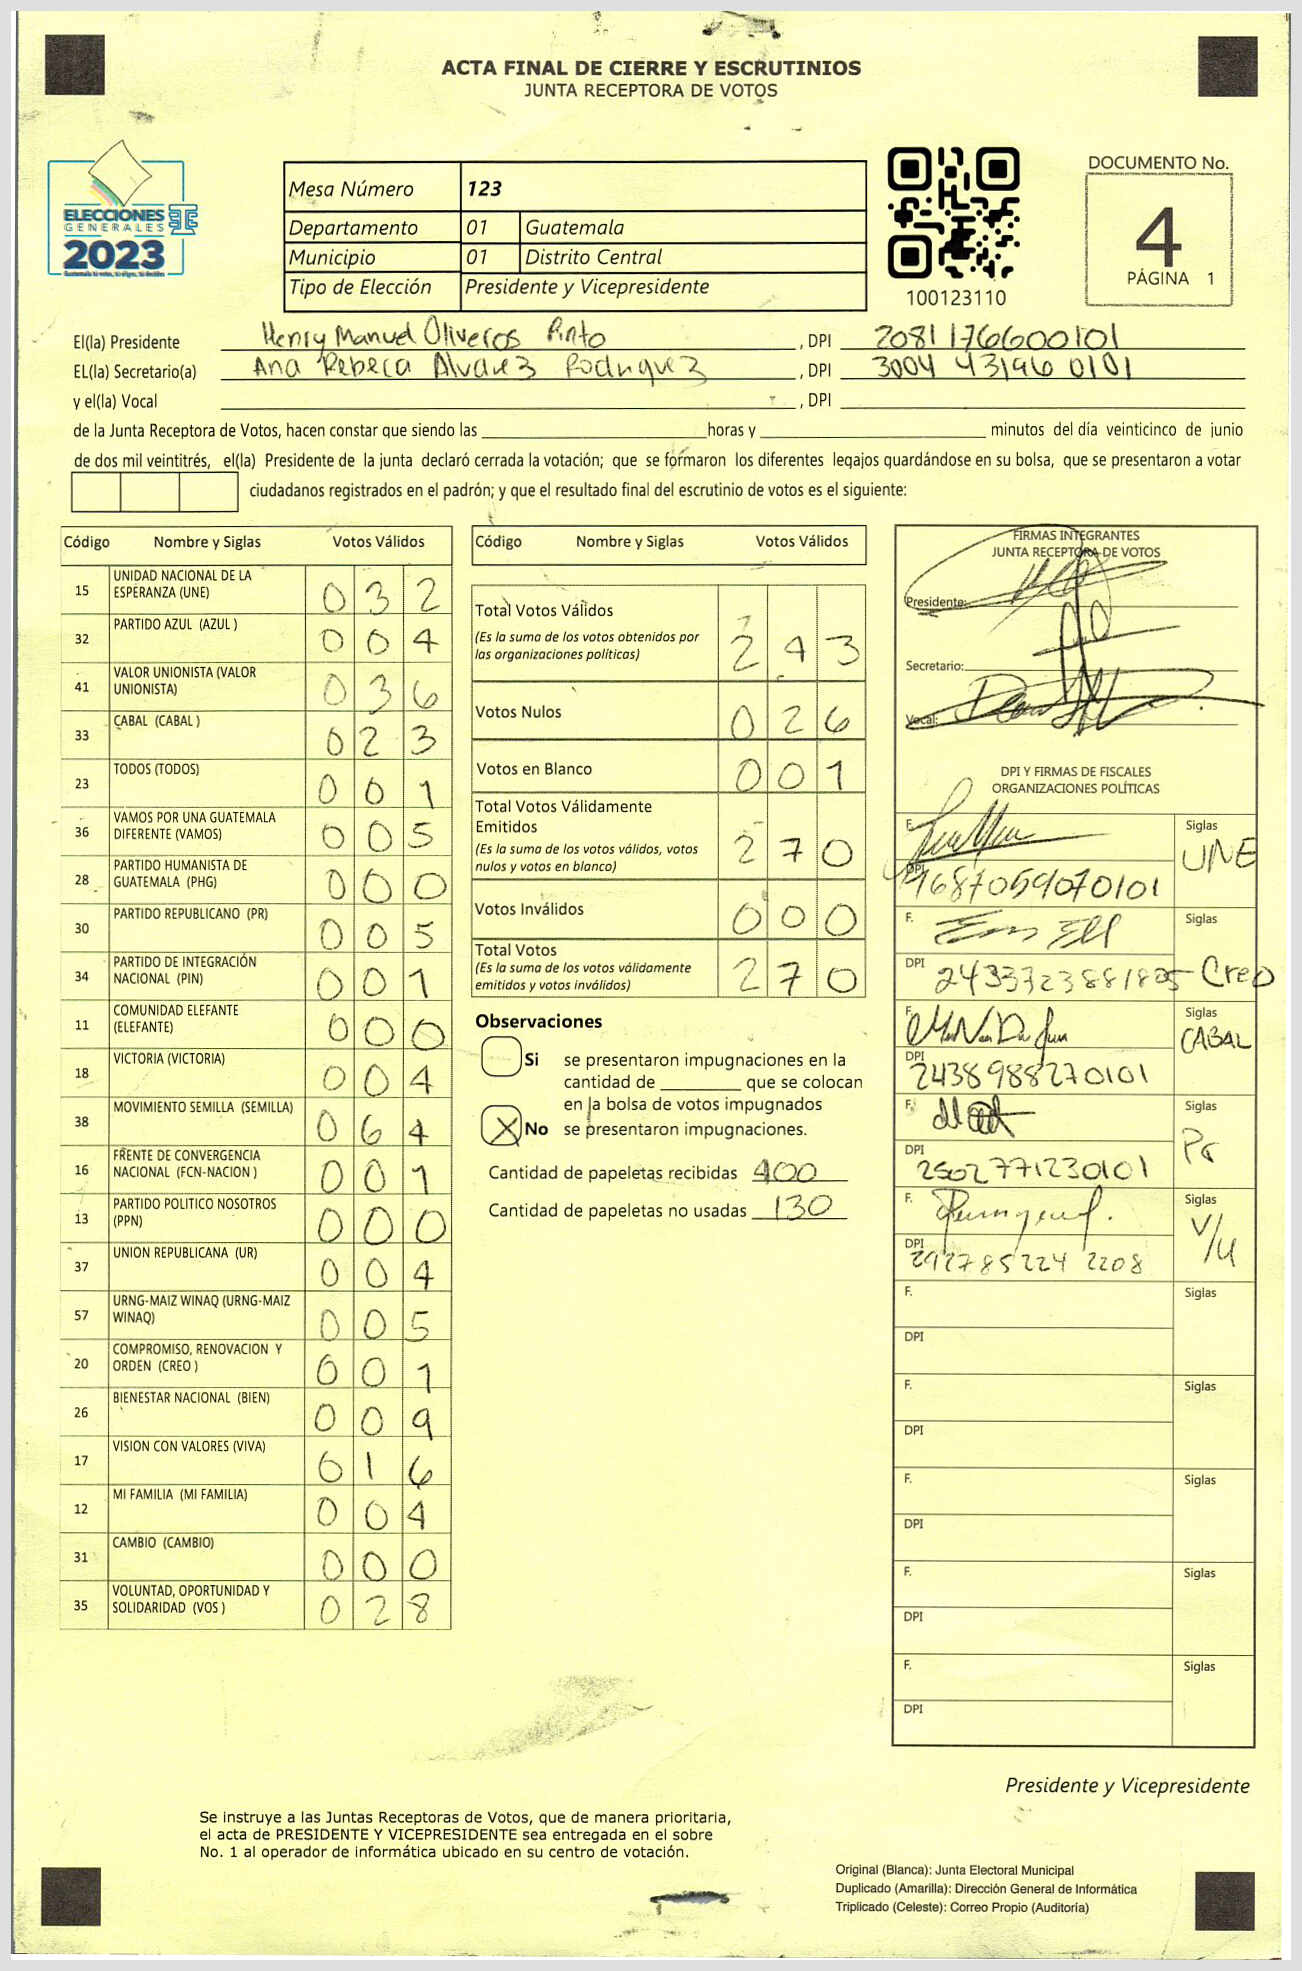 ACTA FINAL DE CIERRE Y ESCRUTINIOS
JUNTA RECEPTORA DE VOTOS
ELECCIONES
GENERALES
2023
Mesa Número 123
Departamento 01 Guatemala
Municipio 01 Distrito Central
Tipo de Elección Presidente y Vicepresidente
100123110
DOCUMENTO No.
4
PÁGINA 1
El(la) Presidente Henry Manuel Oliveros Pinto , DPI 2081176600101
EL(la) Secretario(a) Ana Rebeca Alvarez Rodriguez , DPI 3004 43196 0101
y el(la) Vocal , DPI
de la Junta Receptora de Votos, hacen constar que siendo las horas y minutos del día veinticinco de junio
de dos mil veintitrés, el(la) Presidente de la junta declaró cerrada la votación; que se formaron los diferentes legajos guardándose en su bolsa, que se presentaron a votar
ciudadanos registrados en el padrón; y que el resultado final del escrutinio de votos es el siguiente:
Código Nombre y Siglas Votos Válidos
15 UNIDAD NACIONAL DE LA ESPERANZA (UNE) 032
32 PARTIDO AZUL (AZUL ) 004
41 VALOR UNIONISTA (VALOR UNIONISTA) 036
33 CABAL (CABAL ) 023
23 TODOS (TODOS) 001
36 VAMOS POR UNA GUATEMALA DIFERENTE (VAMOS) 005
28 PARTIDO HUMANISTA DE GUATEMALA (PHG) 000
30 PARTIDO REPUBLICANO (PR) 005
34 PARTIDO DE INTEGRACIÓN NACIONAL (PIN) 001
11 COMUNIDAD ELEFANTE (ELEFANTE) 000
18 VICTORIA (VICTORIA) 004
38 MOVIMIENTO SEMILLA (SEMILLA) 064
16 FRENTE DE CONVERGENCIA NACIONAL (FCN-NACION ) 001
13 PARTIDO POLITICO NOSOTROS (PPN) 000
37 UNION REPUBLICANA (UR) 004
57 URNG-MAIZ WINAQ (URNG-MAIZ WINAQ) 005
20 COMPROMISO, RENOVACION Y ORDEN (CREO ) 001
26 BIENESTAR NACIONAL (BIEN) 009
17 VISION CON VALORES (VIVA) 016
12 MI FAMILIA (MI FAMILIA) 004
31 CAMBIO (CAMBIO) 000
35 VOLUNTAD, OPORTUNIDAD Y SOLIDARIDAD (VOS ) 028
Código Nombre y Siglas Votos Válidos
Total Votos Válidos 243
(Es la suma de los votos obtenidos por
las organizaciones políticas)
Votos Nulos 026
Votos en Blanco 001
Total Votos Válidamente
Emitidos 270
(Es la suma de los votos válidos, votos
nulos y votos en blanco)
Votos Inválidos 000
Total Votos 270
(Es la suma de los votos válidamente
emitidos y votos inválidos)
Observaciones
Si se presentaron impugnaciones en la
cantidad de que se colocan
en la bolsa de votos impugnados
X No se presentaron impugnaciones.
Cantidad de papeletas recibidas 400
Cantidad de papeletas no usadas 130
FIRMAS INTEGRANTES
JUNTA RECEPTORA DE VOTOS
Presidente:
Secretario:
Vocal:
DPI Y FIRMAS DE FISCALES
ORGANIZACIONES POLÍTICAS
F. Siglas UNE
DPI 1687059070101
F. Siglas
DPI 2433323881805 Creo
F. Siglas CABAL
DPI 2438988270101
F. Siglas
DPI 2502771230101
F. Siglas V/U
DPI 292785224 2208
F. Siglas
DPI
F. Siglas
DPI
F. Siglas
DPI
F. Siglas
DPI
F. Siglas
DPI
Presidente y Vicepresidente
Se instruye a las Juntas Receptoras de Votos, que de manera prioritaria,
el acta de PRESIDENTE Y VICEPRESIDENTE sea entregada en el sobre
No. 1 al operador de informática ubicado en su centro de votación.
Original (Blanca): Junta Electoral Municipal
Duplicado (Amarilla): Dirección General de Informática
Triplicado (Celeste): Correo Propio (Auditoría)